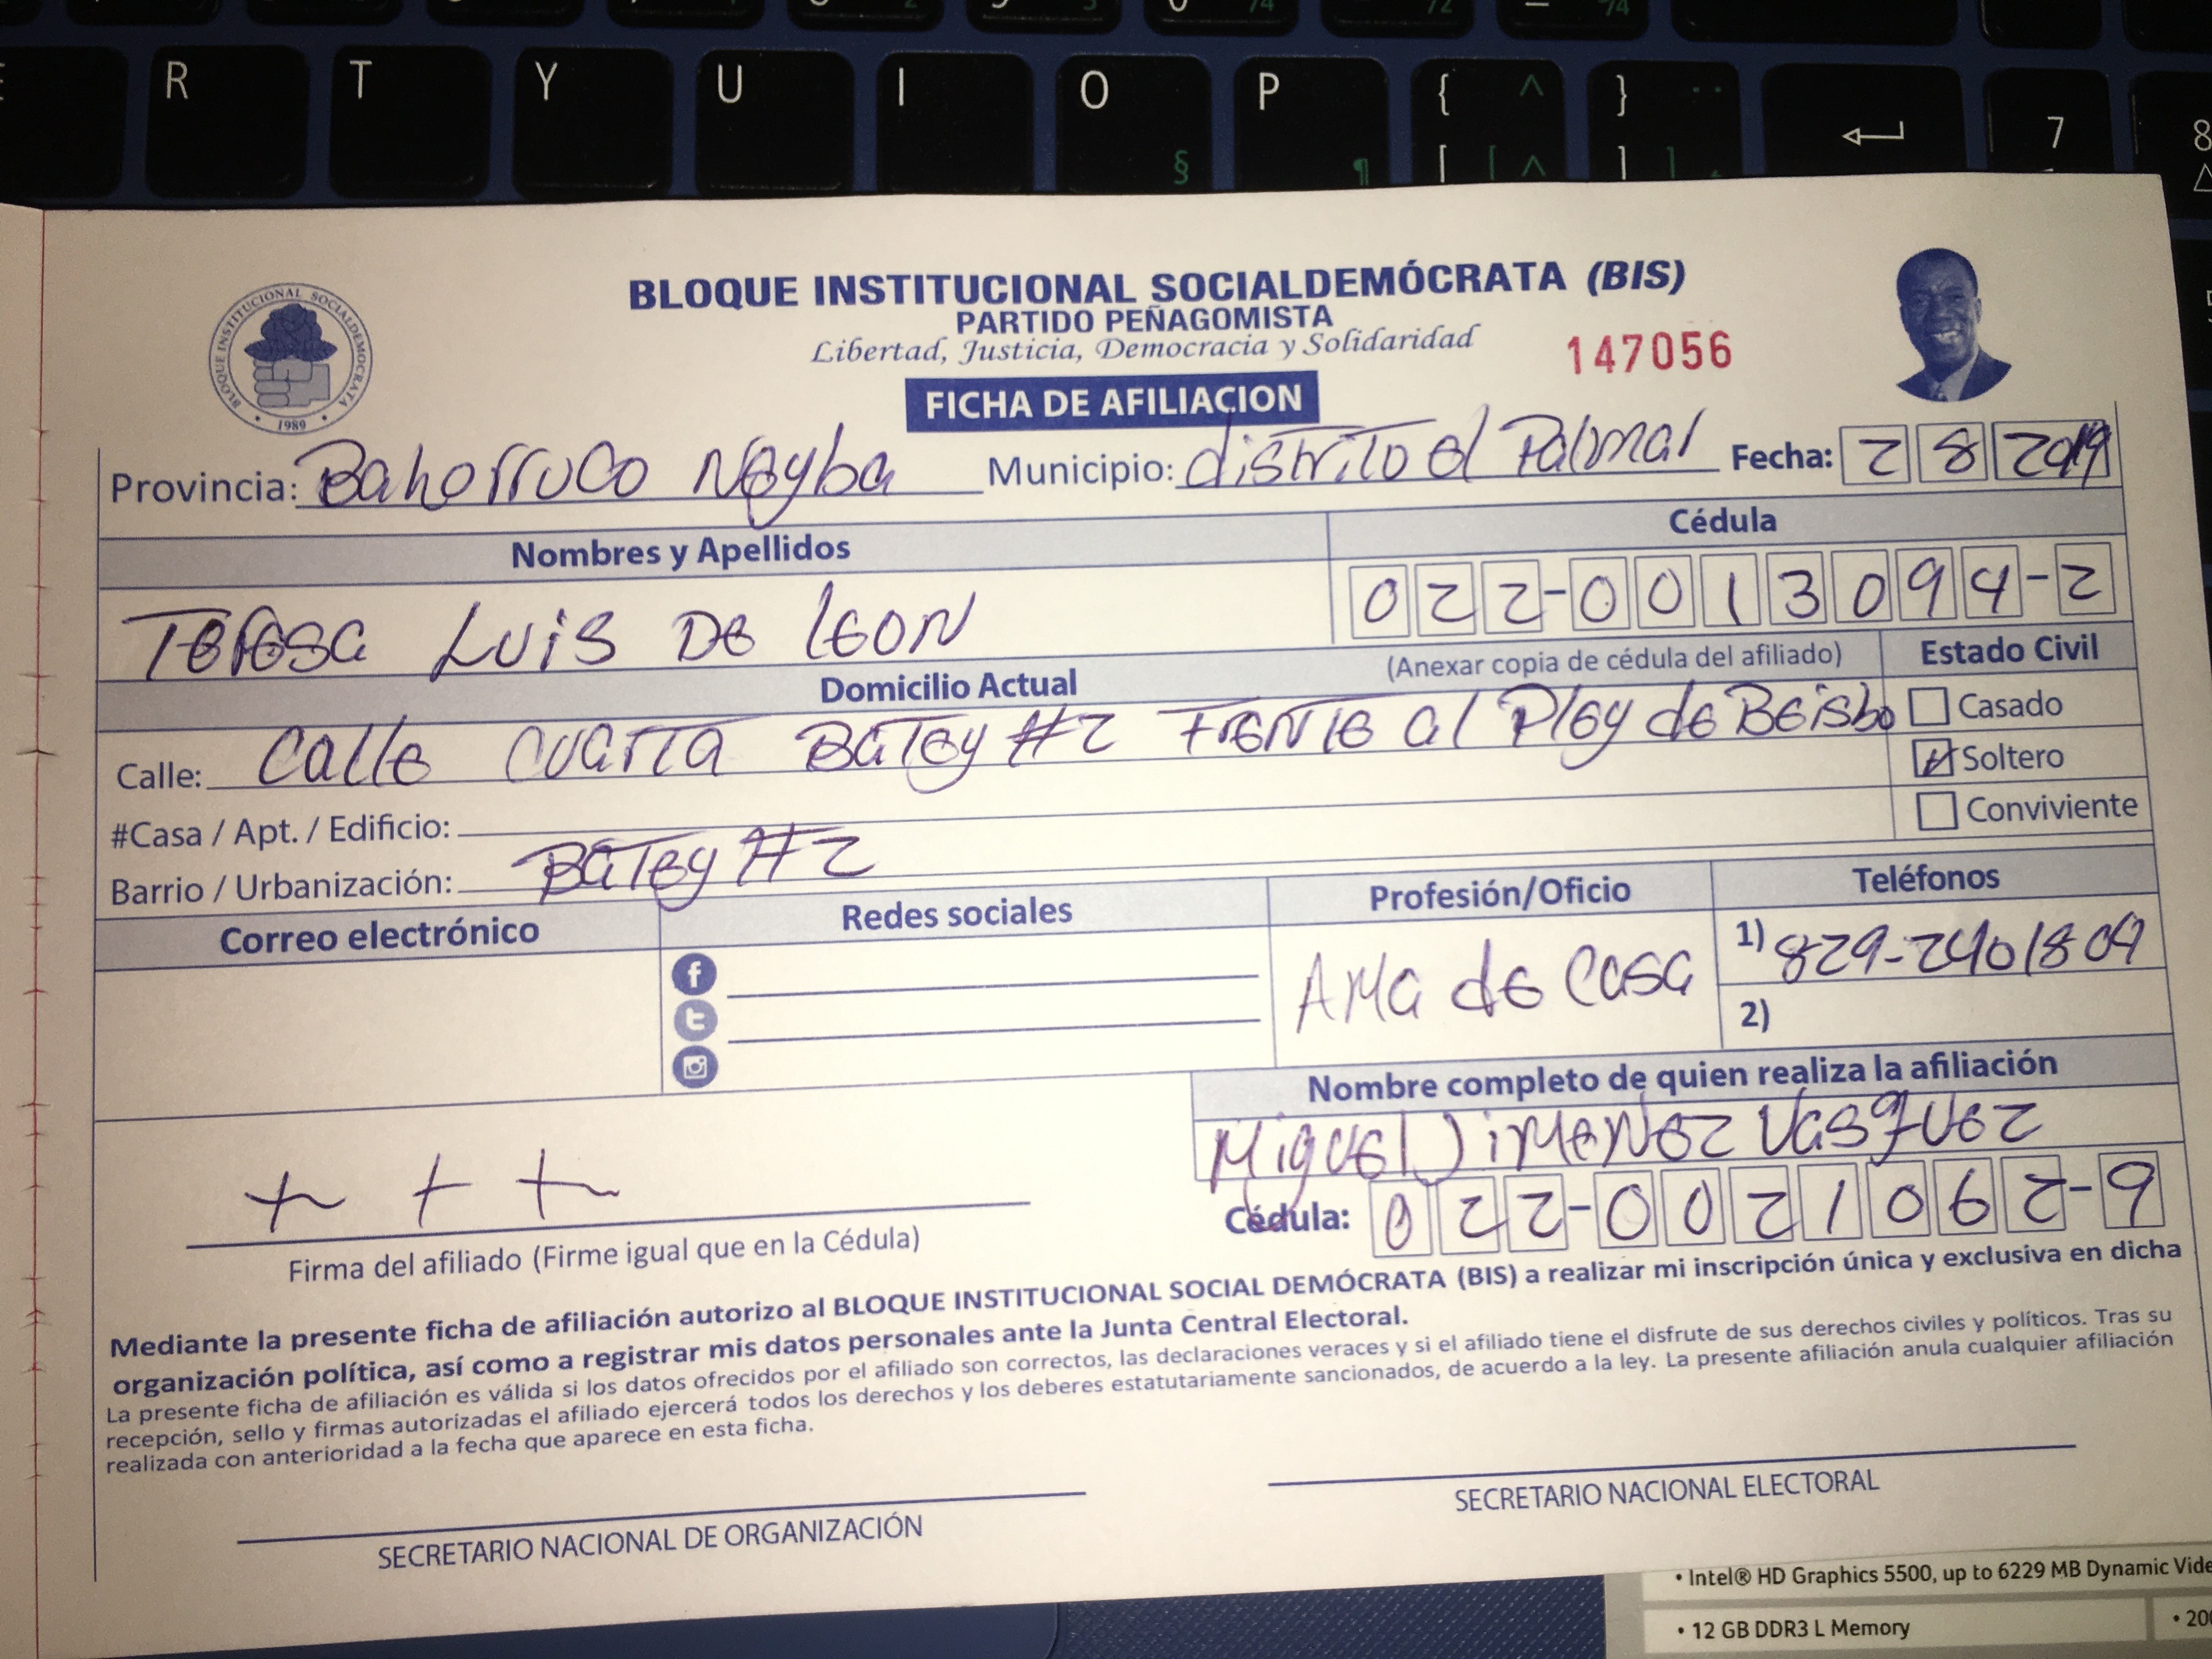 R T Y U I O P { ^ } 7 8
§ ¶ [ [ ^ ] ]
BLOQUE INSTITUCIONAL SOCIALDEMÓCRATA (BIS)
PARTIDO PEÑAGOMISTA
Libertad, Justicia, Democracia y Solidaridad
147056
BLOQUE INSTITUCIONAL SOCIALDEMOCRATA
• 1989 •
FICHA DE AFILIACION
Provincia: Bahorruco Neyba Municipio: distrito el Palmar Fecha: 2 8 2019
Nombres y Apellidos Cédula
Teresa Luis De leon 022-0013094-2
(Anexar copia de cédula del afiliado) Estado Civil
Domicilio Actual
Calle: Calle cuarta Batey #2 Frente al Pley de Beisbo Casado
Soltero
#Casa / Apt. / Edificio: Conviviente
Barrio / Urbanización: Batey #2
Correo electrónico Redes sociales Profesión/Oficio Teléfonos
Ama de Casa 1) 829-2401809
2)
Nombre completo de quien realiza la afiliación
Miguel Jimenez Vasquez
Cédula: 022-0021062-9
+ + +
Firma del afiliado (Firme igual que en la Cédula)
Mediante la presente ficha de afiliación autorizo al BLOQUE INSTITUCIONAL SOCIAL DEMÓCRATA (BIS) a realizar mi inscripción única y exclusiva en dicha
organización política, así como a registrar mis datos personales ante la Junta Central Electoral.
La presente ficha de afiliación es válida si los datos ofrecidos por el afiliado son correctos, las declaraciones veraces y si el afiliado tiene el disfrute de sus derechos civiles y políticos. Tras su
recepción, sello y firmas autorizadas el afiliado ejercerá todos los derechos y los deberes estatutariamente sancionados, de acuerdo a la ley. La presente afiliación anula cualquier afiliación
realizada con anterioridad a la fecha que aparece en esta ficha.
SECRETARIO NACIONAL DE ORGANIZACIÓN SECRETARIO NACIONAL ELECTORAL
• Intel® HD Graphics 5500, up to 6229 MB Dynamic Vide
• 12 GB DDR3 L Memory • 20